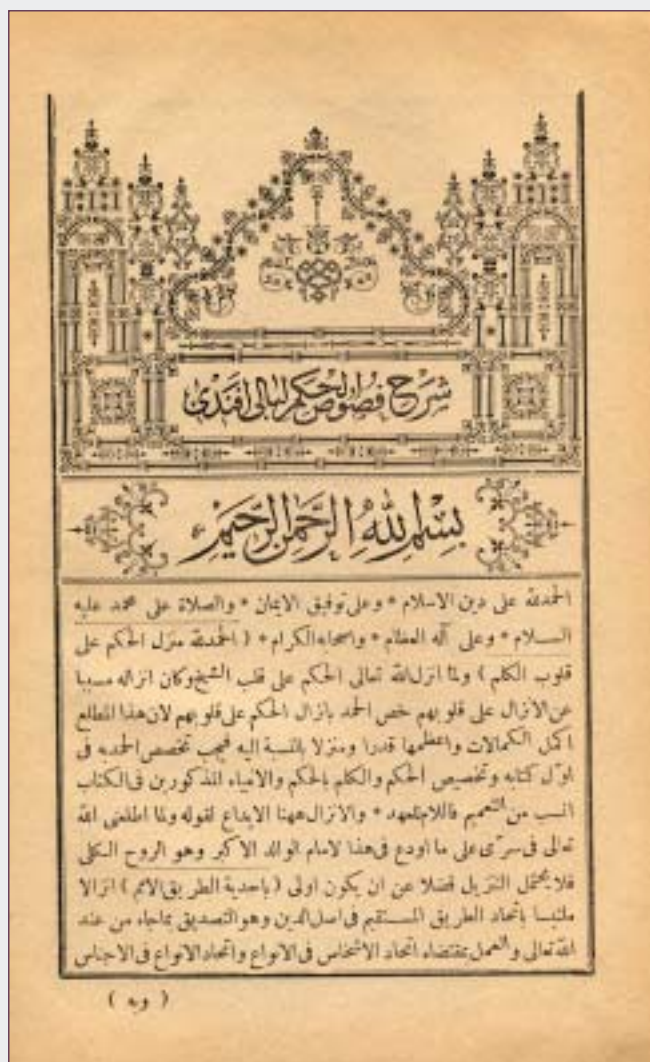 شرح فصوص الحكم لبالى افندى
بسم الله الرحمن الرحيم
الحمدلله على دين الاسلام * وعلى توفيق الايمان * والصلاة على محمد عليه
السلام * وعلى آله العظام * واصحابه الكرام * ( الحمدلله منزل الحكم على
قلوب الكلم ) ولما انزل الله تعالى الحكم على قلب الشيخ وكان انزاله مسببا
عن الانزال على قلوبهم خص الحمد بانزال الحكم على قلوبهم لان هذا المطلع
اكمل الكمالات واعظمها قدرا ومنزلا بالنسبة اليه فيجب تخصيص الحمد به فى
اول كتابه وتخصيص الحكم والكلم بالحكم والانبياء المذكورين فى الكتاب
انسب من التعميم فاللام للعهد * والانزال ههنا الايداع لقوله ولما اطلعنى الله
تعالى فى سرّى على ما اودع فى هذا الامام الوالد الاكبر وهو الروح الكلى
فلا يحتمل التنزيل فضلا عن ان يكون اولى ( باحدية الطريق الامم ) انزالا
ملتبسا باتحاد الطريق المستقيم فى اصل الدين وهو التصديق بما جاء من عند
الله تعالى والعمل بمقتضاه اتحاد الاشخاص فى الانواع واتحاد الانواع فى الاجناس
( وبه )